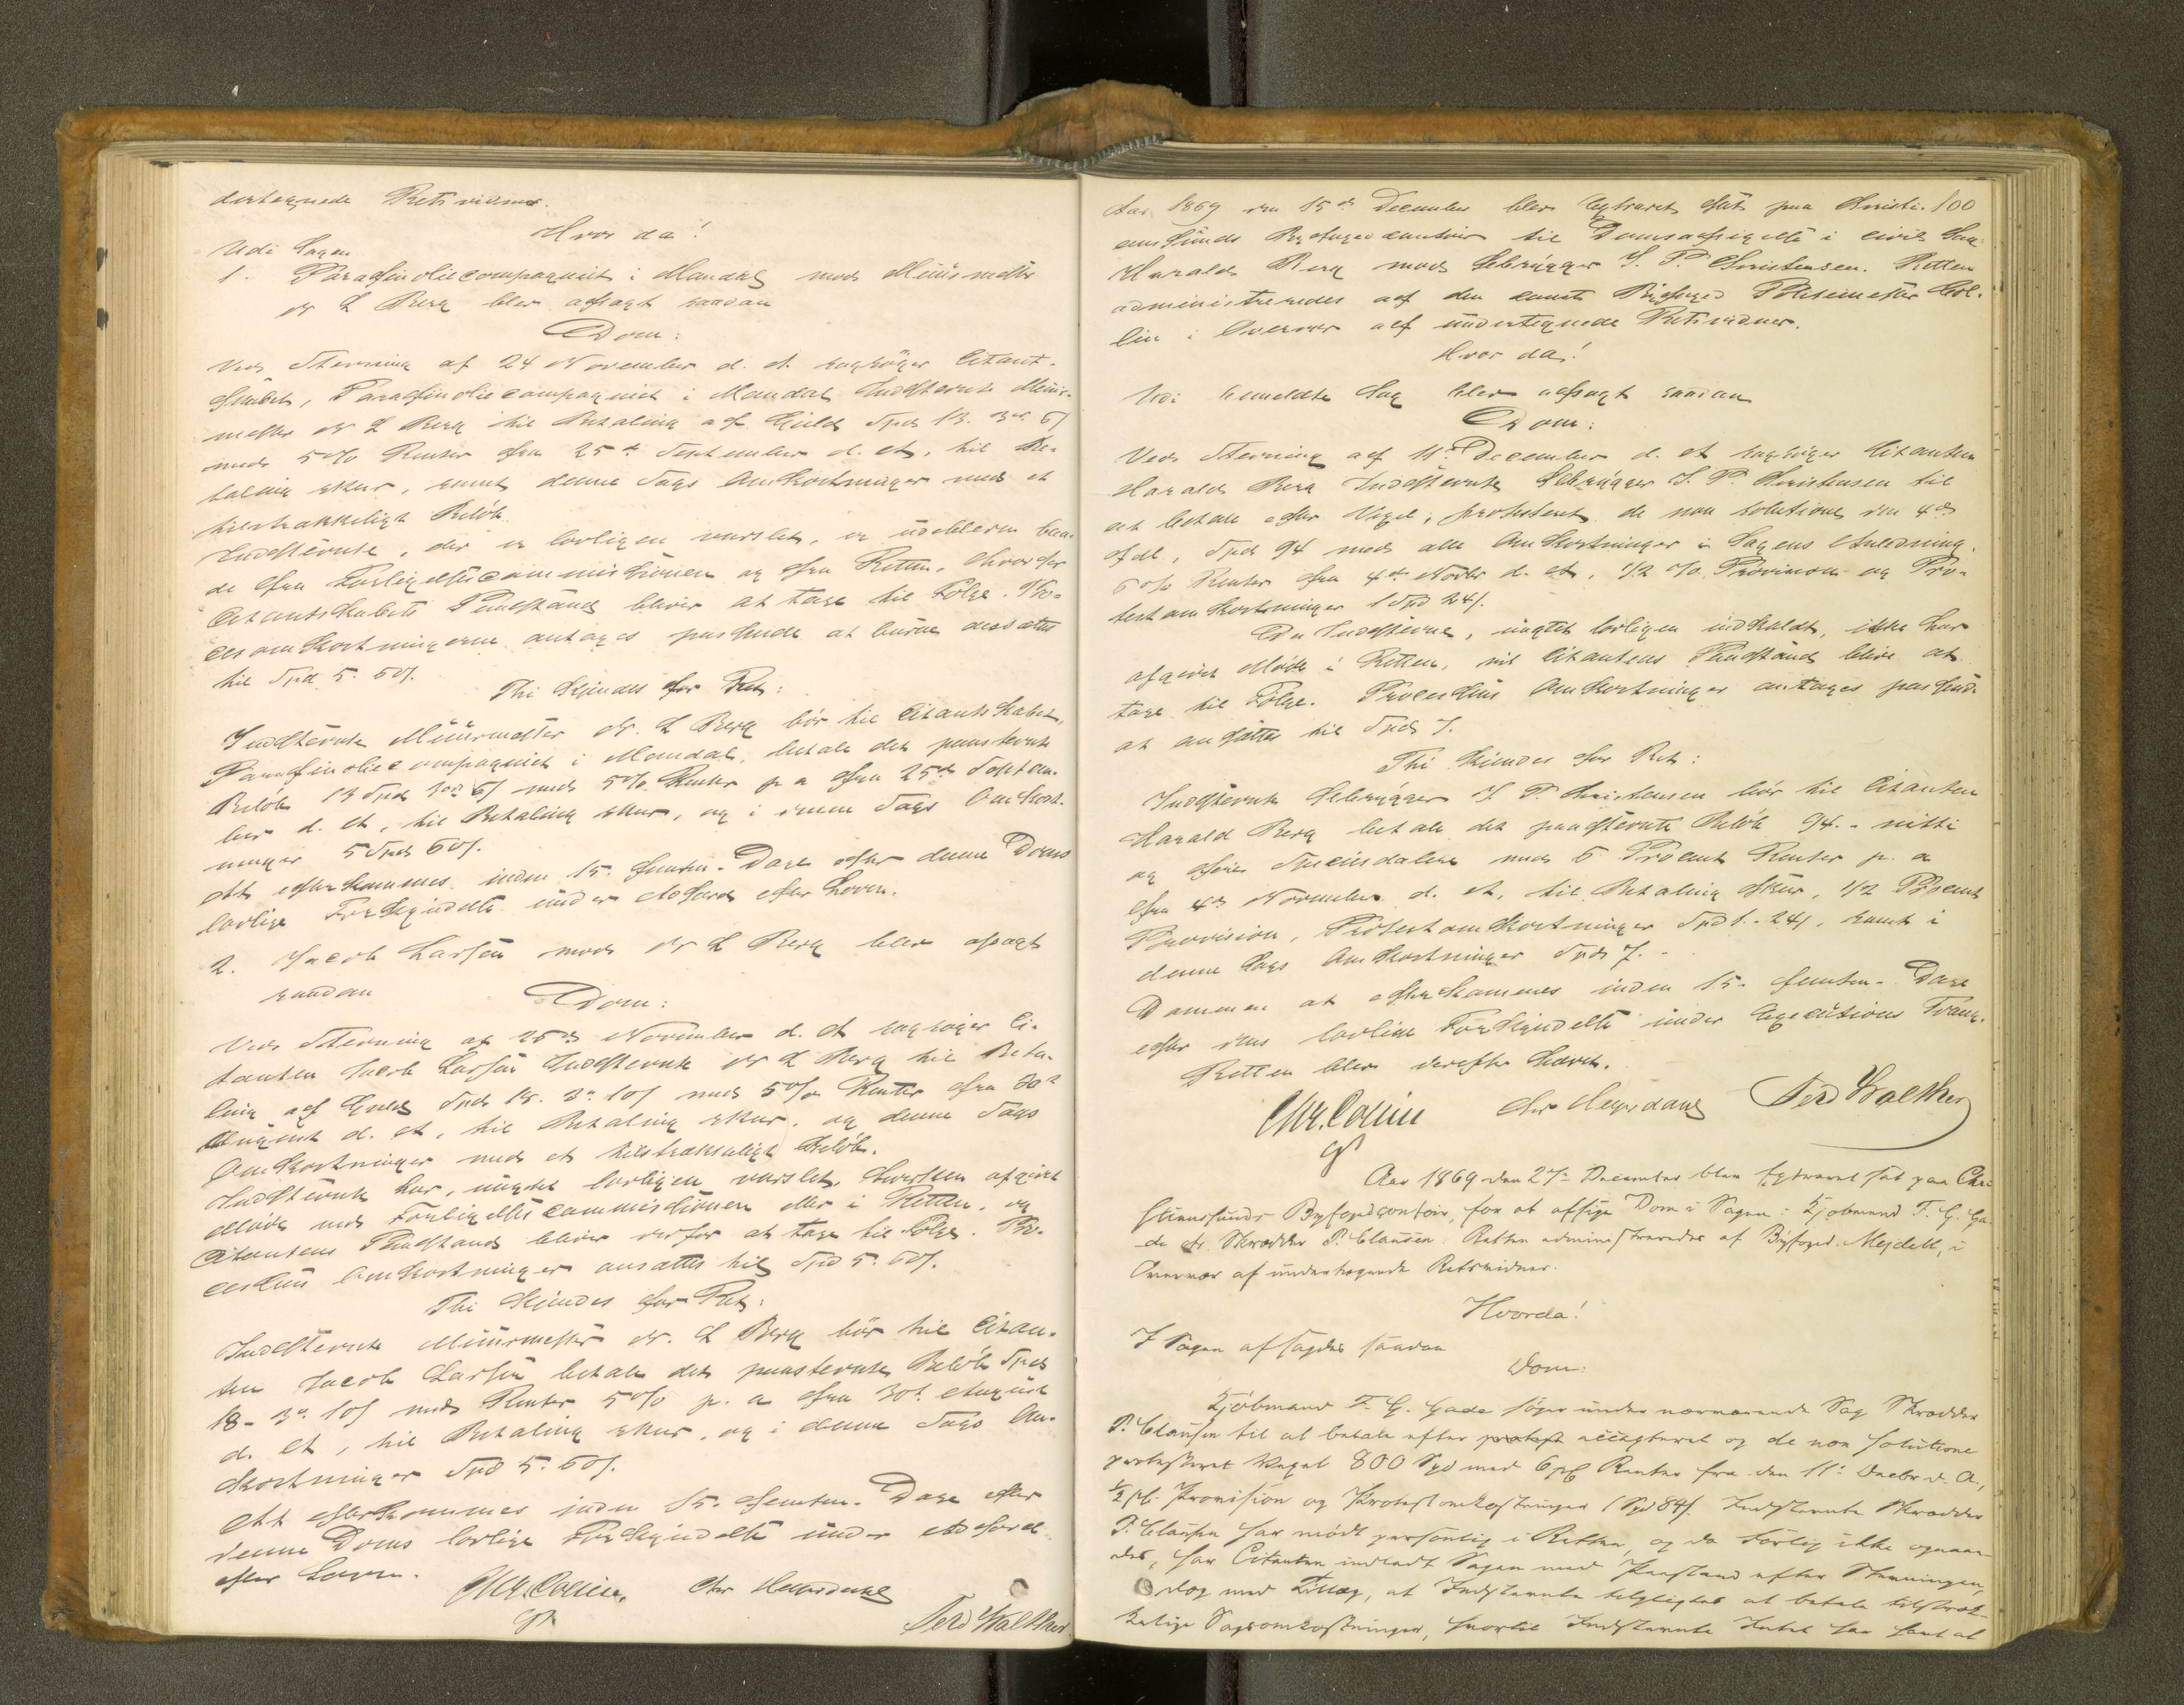 dertegnede Retsvidner.
Hvor da!
Udi Sagen
1. Parafinoliecompagniet i Mandal mod Muurmester
L Berg blev afsagt saadan
Dom:
Ved Stevning af 24 November d. A. sagsøger Citant-
skabet, Parafinoliecompagniet i Mandal Indstevnte Muur-
mester L Berg til Betaling af Gjeld Spd 13. 3 6/
med 5% Renter fra 25de September d. A. til Be-
taling skeer, samt denne Sags Omkostninger med et
tilstrækkeligt Beløb.
Indstevnte, der er lovligen varslet, er udebleven baa-
de fra Forligelsescommissionen og fra Retten, hvorfor
Citantskabets Paastand bliver at tage til Følge. Pro-
cesomkostningerne antages passende at burde ansættes
til Spd 5. 60/.
Thi kjendes for Ret:
Indstevnte Muurmester L Berg bør til Citantskabet,
Parafinoliecompagniet i Mandal, betale det paastevnte
Beløb 13 Spd 3 6/ med 5% Renter p a fra 25de Septem-
ber d. A., til Betaling skeer, og i denne Sags Omkost-
ninger 5 Spd 60/.
At efterkommes inden 15. femten. Dage efter denne Doms
lovlige Forkyndelse under Adfærd efter Loven.
2. Jacob Larsen mod L Berg blev afsagt
saadan
Dom:
Ved Stevning af 25de November d. A. sagsøger Ci-
tanten Jacob Larsen Indstevnte L Berg til Beta-
ling af Gjeld Spd 18. 3 10/ med 5% Renter fra 30te
August d. A., til Betaling skeer, og denne Sags
Omkostninger med et tilstrækkeligt Beløb.
Indstevnte har, uagtet lovligen varslet, hverken afgivet
Møde ved Forligelsescommissionen eller i Retten, og
Citantens Paastand bliver derfor at tage til Følge. Pro-
cessens Omkostninger ansættes til Spd 5. 60/.
Thi kjendes for Ret:
Indstevnte Muurmester L Berg bør til Citan-
ten Jacob Larsen betale det paastevnte Beløb Spd
18- 3 10/ med Renter 5% p. a fra 30te August
d. A., til Betaling skeer, og i denne Sags Om-
kostninger Spd 5. 60/.
At efterkommes inden 15. femten. Dage efter
denne Doms lovlige Forkyndelse under Adfærd
efter Loven.
Chr. Collin, Chr
Ferd Walther
Aar 1869 den 15de December blev Extraret sat paa Christi- 100
anssunds Byfogedcontoir til Domsafsigelse i civil Sag:
Harald Berg mod Sebrygger Christensen. Retten
administreredes af den const. Byfoged Politimester Col-
lin i Overvær af undertegnede Retsvidner.
Hvor da!
Udi bemeldte Sag blev afsagt saadan
Dom:
Ved Stevning af 11te December d. A. sagsøger Citanten
Harald Berg Indstevnte Christensen til
at betale efter Vexel, protesteret de non solutione den 4de
Spd 94 med alle Omkostninger i Sagens Anledning.
6% Renter fra 4de Novbr d. A., 1/2 % Provision og Pro-
testomkostninger 1 Spd 24/.
Da Indstevnte, uagtet lovligen indkaldt, ikke har
afgivet Møde i Retten, vil Citantens Paastand blive at
tage til Følge. Processens Omkostninger antages passende
at ansættes til Spd 7.
Thi kjendes for Ret:
Indstevnte Christensen bør til Citanten
Harald Berg betale det paastevnte Beløb 94. - nitti
og fire Speciesdaler med 6 Procent Renter p. a
fra 4de November d. A., til Betaling skeer, 1/2 Procent
Provision, Protestomkostninger Spd 1. 24/, samt i
denne Sags Omkostninger Spd 7. -
Dommen at efterkommes inden 15. femten. Dage
efter dens lovlige Forkyndelse under Executions Tvang.
Retten blev derefter hævet.
Chr. Collin Chr Ferd Walther
Aar 1869 den 27de December blev Extraret sat paa Chri
stianssunds Byfogedcontoir, for at afsige Dom i Sagen: Kjøbmand F. G. Ga-
de ctr. Skrædder P. Clausen. Retten administreredes af Byfoged Mejdell, i
Overvær af undertegnede Retsvidner.
Hvorda!
I Sagen afsagdes saadan
Dom:
Kjøbmand F. G. Gade søger under nærværende Sag Skrædder
P. Clausen til at betale efter protest accepteret og de non solutione
protesteret Vexel 800 Spd med 6 pC Renter fra den 11te Decbr d. A.,
1/2 pC. Provision og Protestomkostninger 1 Spd 84/. Indstevnte Skrædder
P. Clausen har mødt personlig i Retten, og da Forlig ikke opnaae-
des, har Citanten indladt Sagen med Paastand efter Stevningen,
dog med Tillæg, at Indstevnte tilpligtes at betale tilstræk-
kelige Sagsomkostninger, hvortil Indstevnte Intet har havt at